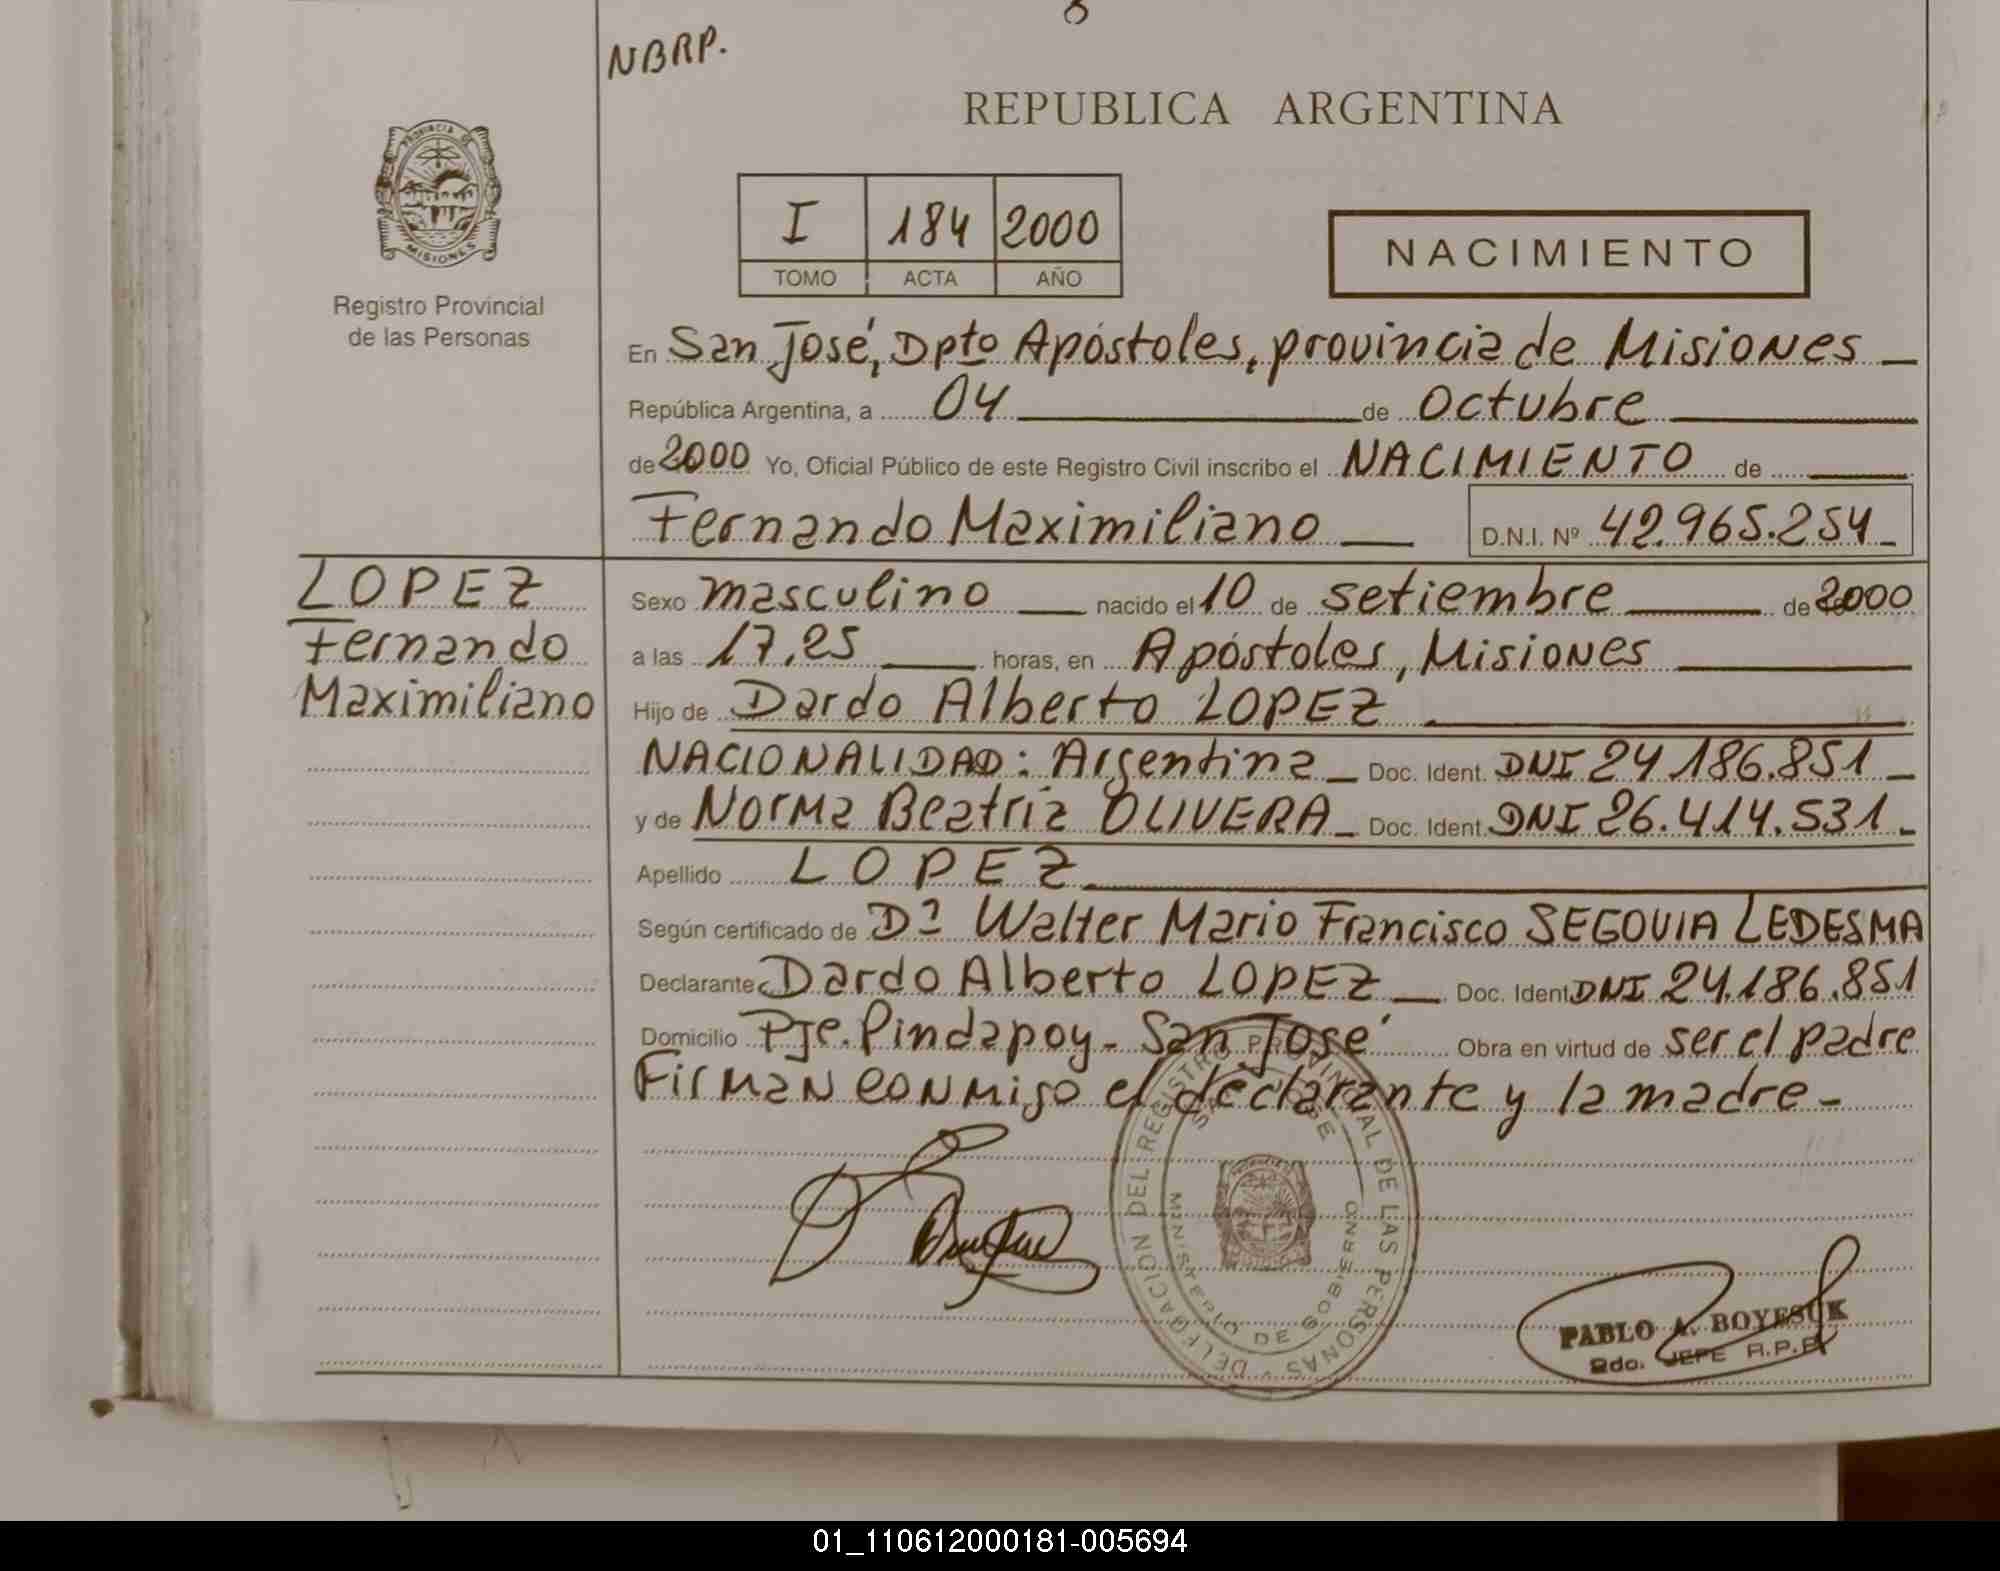 8
NBRP.
REPUBLICA ARGENTINA
PROVINCIA DE
MISIONES
Registro Provincial
de las Personas
I 184 2000
TOMO ACTA AÑO
NACIMIENTO
En San José, Dpto Apóstoles, provincia de Misiones
República Argentina, a 04 de octubre
de 2000 Yo, Oficial Público de este Registro Civil inscribo el NACIMIENTO de
Fernando Maximiliano D.N.I. Nº 42.965.254
LOPEZ
Fernando
Maximiliano
Sexo masculino nacido el 10 de setiembre de 2000
a las 17,25 horas, en Apóstoles, Misiones
Hijo de Dardo Alberto LOPEZ
NACIONALIDAD: Argentina Doc. Ident. DNI 24.186.851
y de Norma Beatriz OLIVERA Doc. Ident. DNI 26.414.531
Apellido LOPEZ
Según certificado de Dº Walter Mario Francisco SEGOVIA LEDESMA
Declarante Dardo Alberto LOPEZ Doc. Ident DNI 24.186.851
Domicilio Pje. Pindapoy - San José Obra en virtud de ser el padre
Firman conmigo el declarante y la madre-
DELEGACION DEL REGISTRO PROVINCIAL DE LAS PERSONAS
SAN JOSE
MINISTERIO DE GOBIERNO
PABLO A. BOYESUK
2do. JEFE R.P.P.
01_110612000181-005694